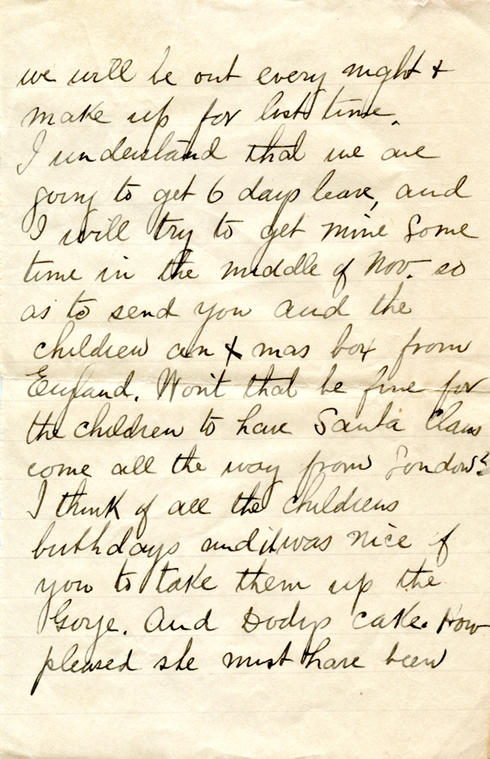 we will be out every night +
make up for lost time.
I understand that we are
going to get 6 days leave, and
I will try to get mine some
time in the middle of Nov. so
as to send you and the
children an Xmas box from
England. Won't that be fine for
the children to have Santa Claus
come all the way from London?
I think of all the childrens
birthdays and it was nice of
you to take them up the
Gorge. And Dodys cake. How
pleased she must have been